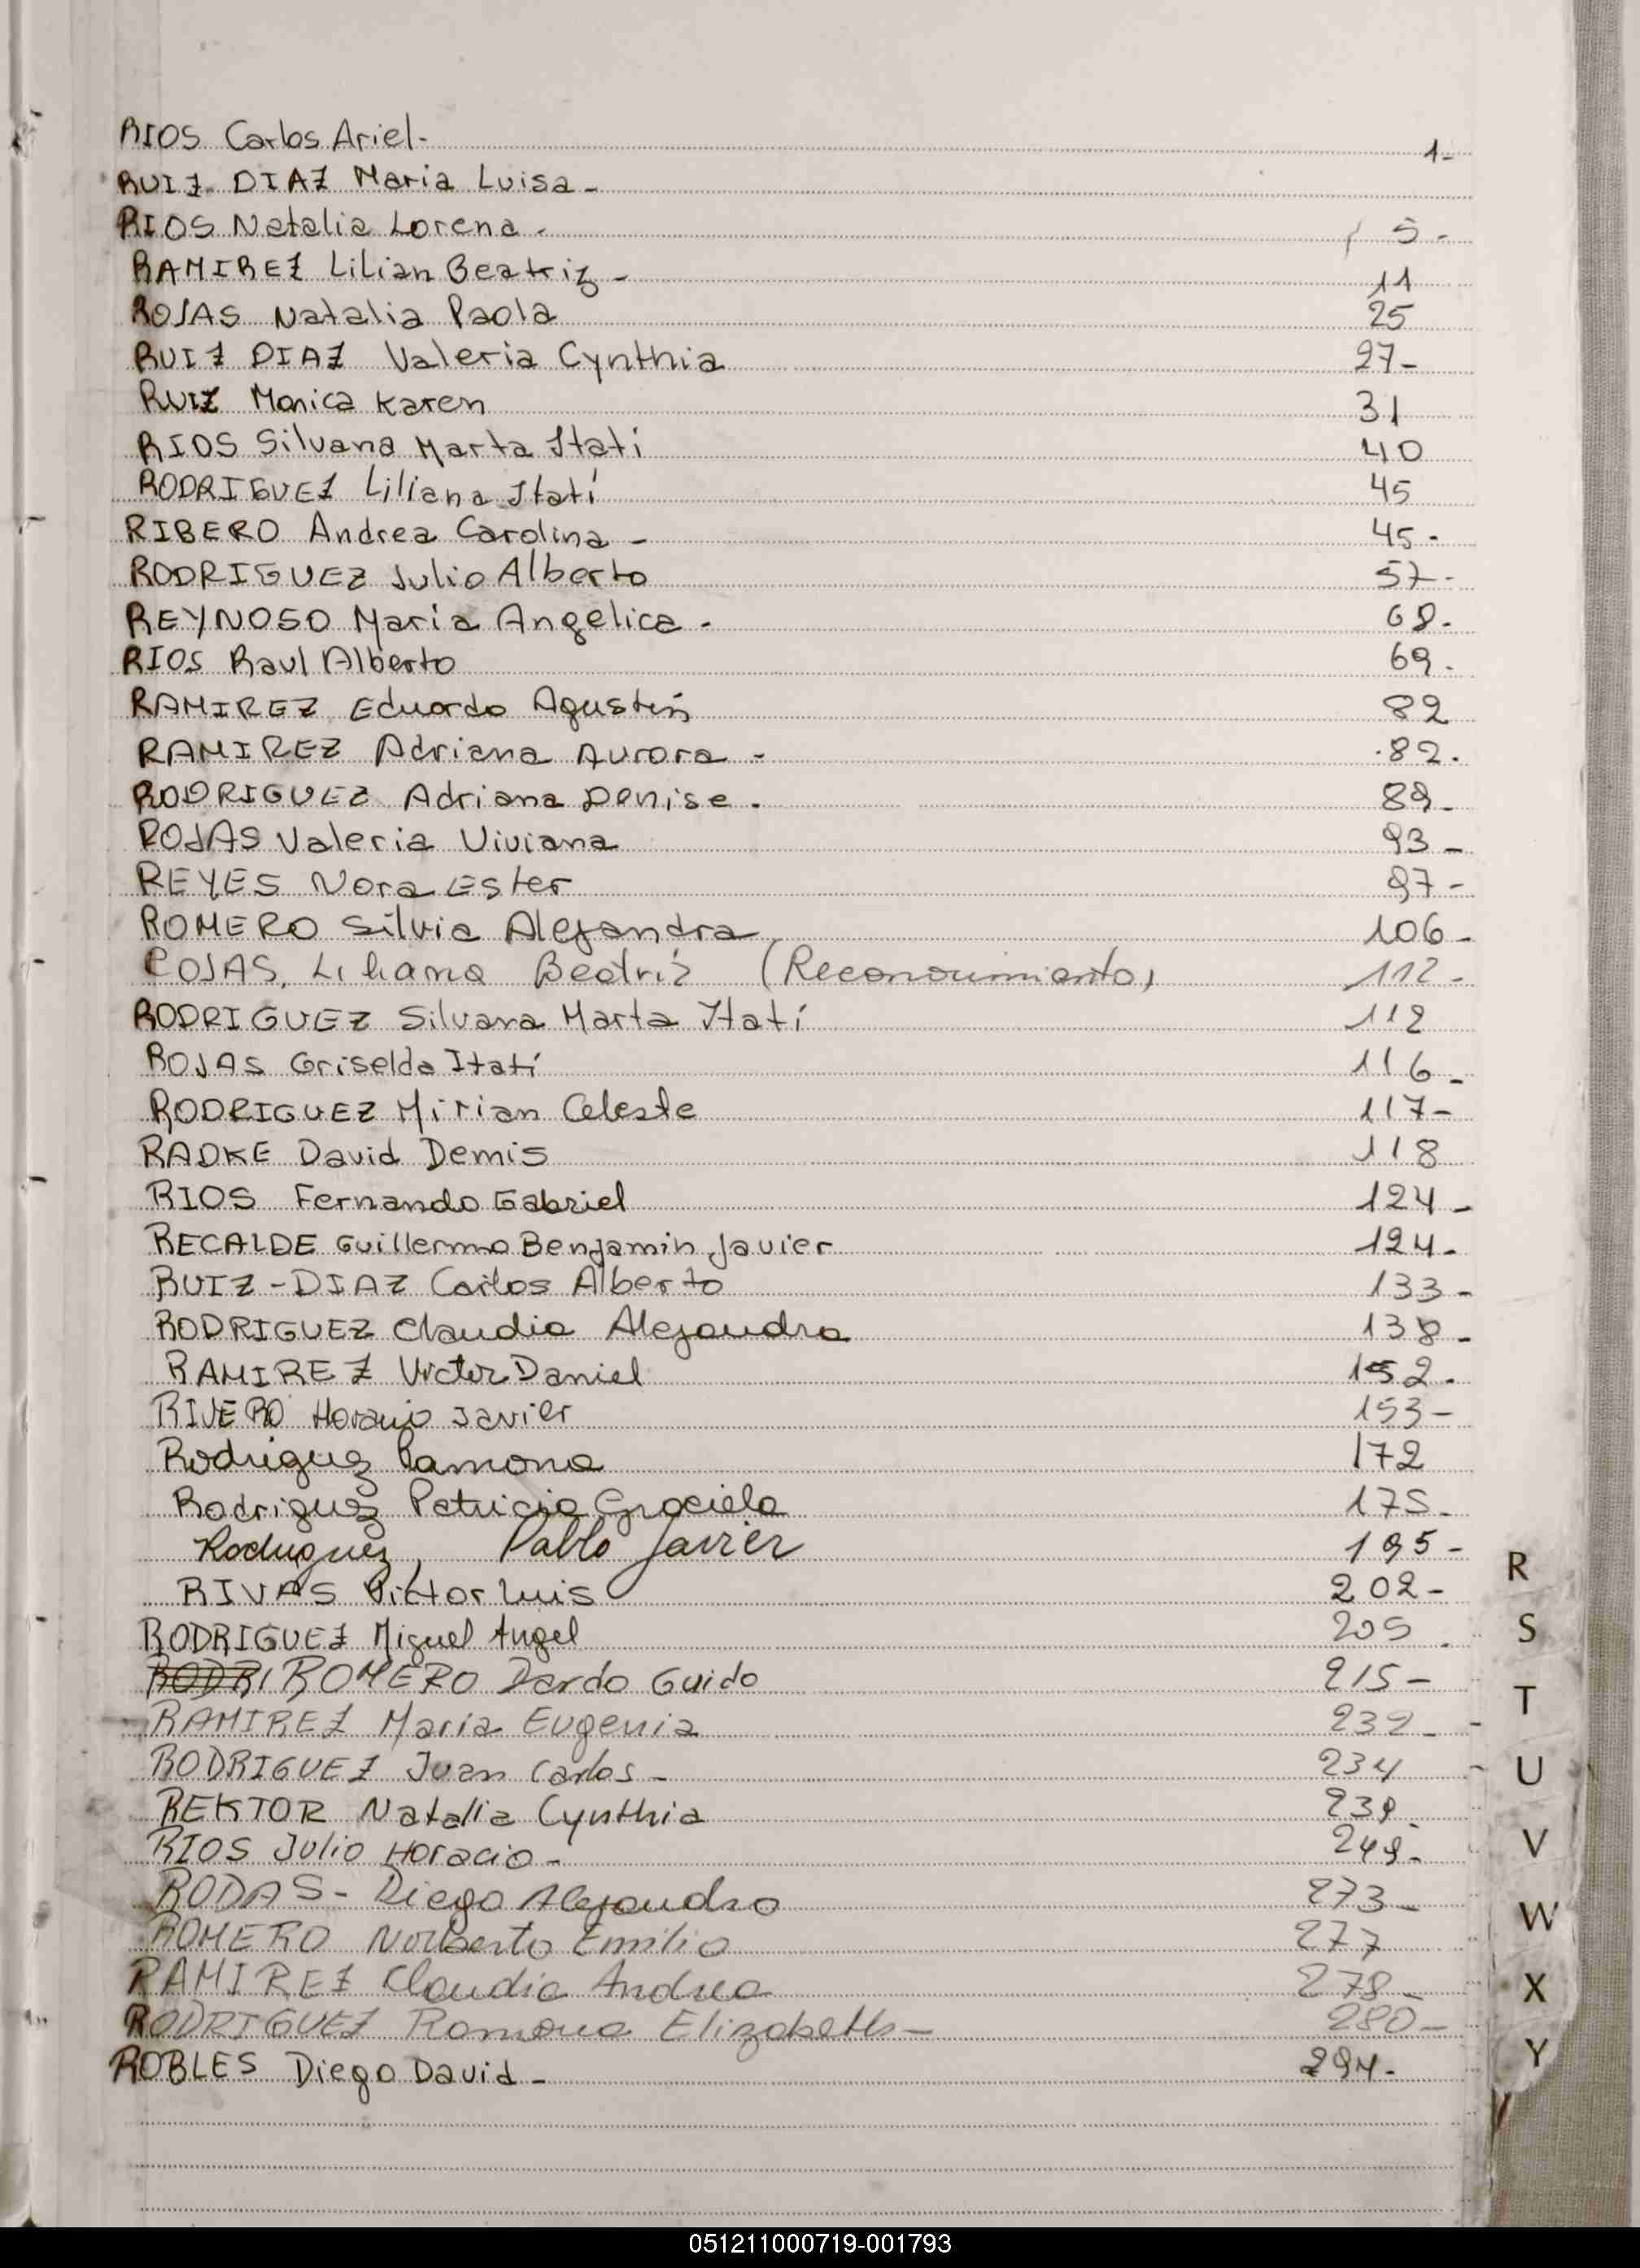 RIOS Carlos Ariel- 1-
RUIZ DIAZ Maria Luisa-
RIOS Natalia Lorena- 5-
RAMIREZ Lilian Beatriz- 11
ROJAS Natalia Paola 25
RUIZ DIAZ Valeria Cynthia 27-
RUIZ Monica Karen 31
RIOS Silvana Marta Itati 40
RODRIGUEZ Liliana Itatí 45
RIBERO Andrea Carolina- 45-
RODRIGUEZ Julio Alberto 57-
REYNOSO María Angelica- 68-
RIOS Raul Alberto 69-
RAMIREZ Eduardo Agustín 82
RAMIREZ Adriana Aurora- 82.
RODRIGUEZ Adriana Denise. 89-
ROJAS Valeria Viviana 93-
REYES Nora Ester 97-
ROMERO Silvia Alejandra 106-
ROJAS, Liliana Beatriz (Reconocimiento) 112-
RODRIGUEZ Silvana Marta Itatí 112
ROJAS Griselda Itatí 116-
RODRIGUEZ Mirian Celeste 117-
RADKE David Demis 118
RIOS Fernando Gabriel 124-
RECALDE Guillermo Benjamin Javier 124-
RUIZ-DIAZ Carlos Alberto 133-
RODRIGUEZ Claudia Alejandra 138-
RAMIREZ Victor Daniel 152-
RIVERO Horacio Javier 153-
Rodriguez Ramona 172
Rodriguez Patricia Graciela 175-
Rodriguez, Pablo Javier 195-
RIVAS Victor Luis 202-
RODRIGUEZ Miguel Angel 205
RODRI ROMERO Dardo Guido 215-
RAMIREZ María Eugenia 232-
RODRIGUEZ Juan Carlos- 234
REKTOR Natalia Cynthia 239
RIOS Julio Horacio- 249-
RODAS- Diego Alejandro 273-
ROMERO Norberto Emilio 277
RAMIREZ Claudia Andrea 278-
RODRIGUEZ Ramona Elizabeth- 280-
ROBLES Diego David- 294-
R
S
T
U
V
W
X
Y
051211000719-001793